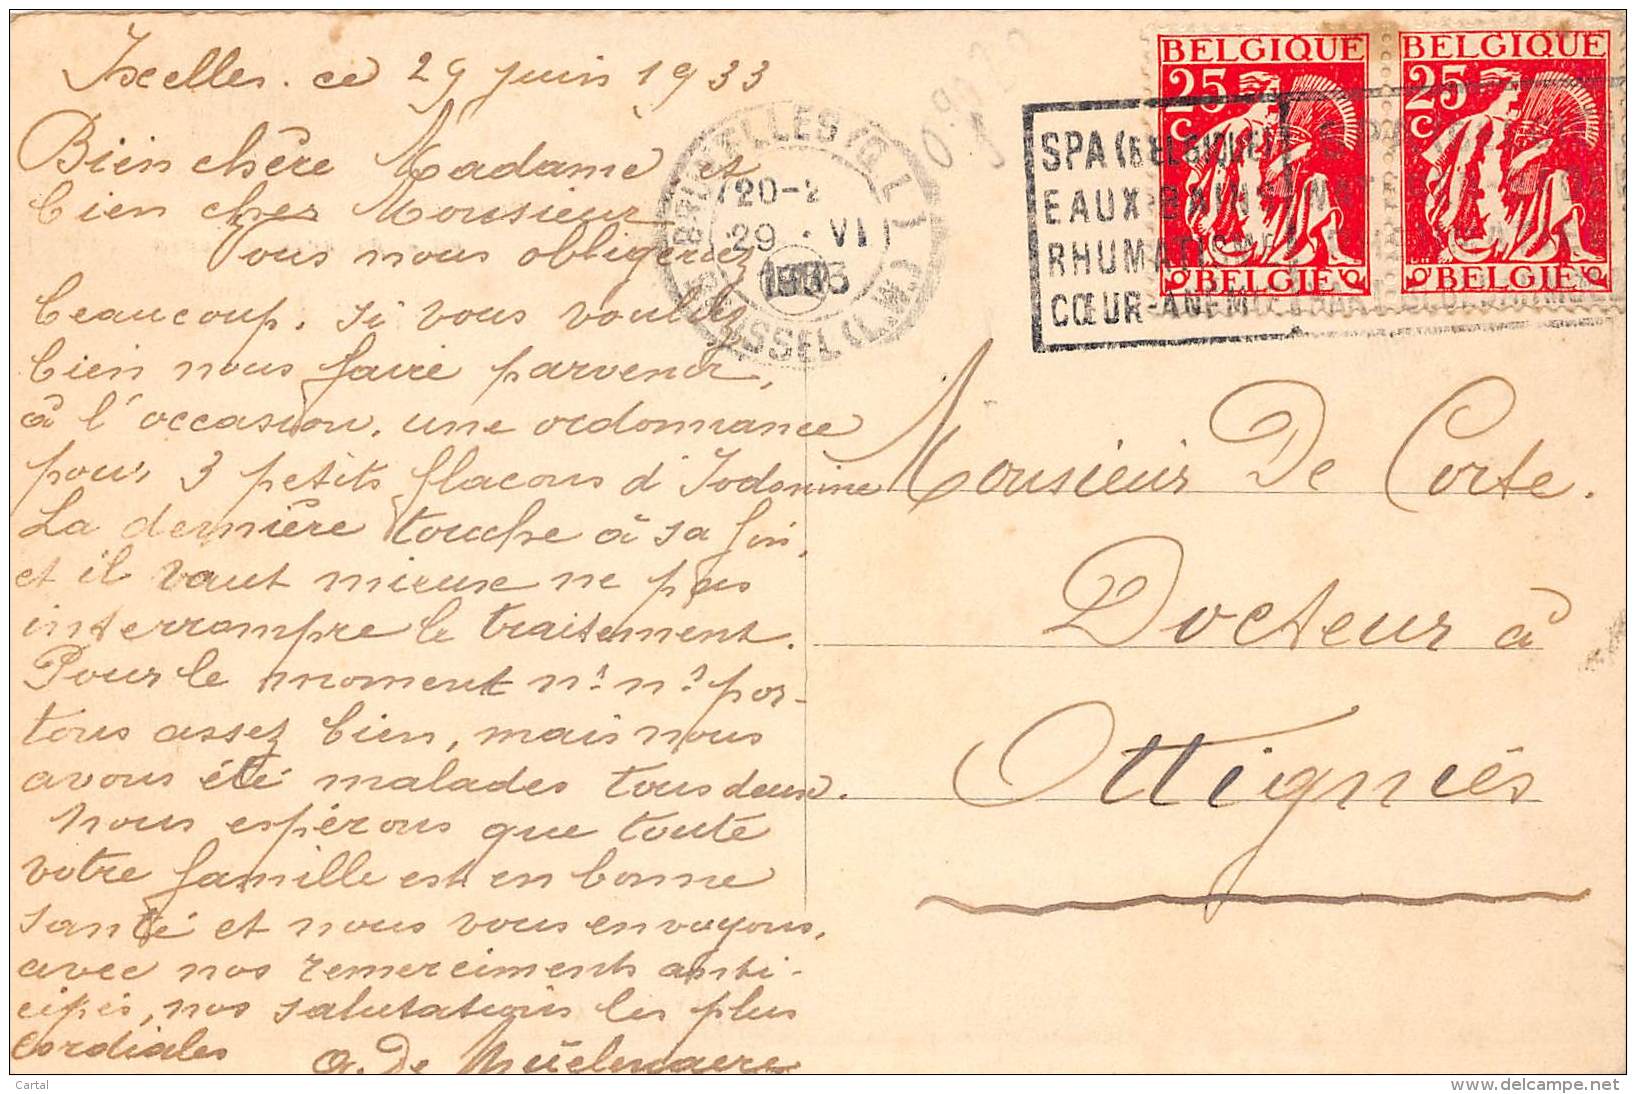 Ixelles. ce 29 juin 1933
Bien chère Madame et
bien cher Monsieur
Vous nous obligeriez
beaucoup, si vous vouliez
bien nous faire parvenir,
à l'occasion, une ordonnance
pour 3 petits flacons d'Iodonine
La dernière touche à sa fin,
et il vaut mieux ne pas
interrompre le traitement.
Pour le moment n.s n.s por-
tons assez bien, mais nous
avons été malades tous deux.
Nous espérons que toute
votre famille est en bonne
santé et nous vous envoyons,
avec nos remerciments anti-
cipés, nos salutations les plus
cordiales
A. De
BRUXELLES (Q.L.)
20-2
29 · VI
1933
BRUSSEL (L.W.)
SPA (BELGIQUE)
EAUX-BAINS
RHUMATISME
CŒUR-ANEMIE
BELGIQUE
25
C
BELGIE
BELGIQUE
25
C
BELGIE
Monsieur De Corte.
Docteur à
Ottignies
Cartal
www.delcampe.net